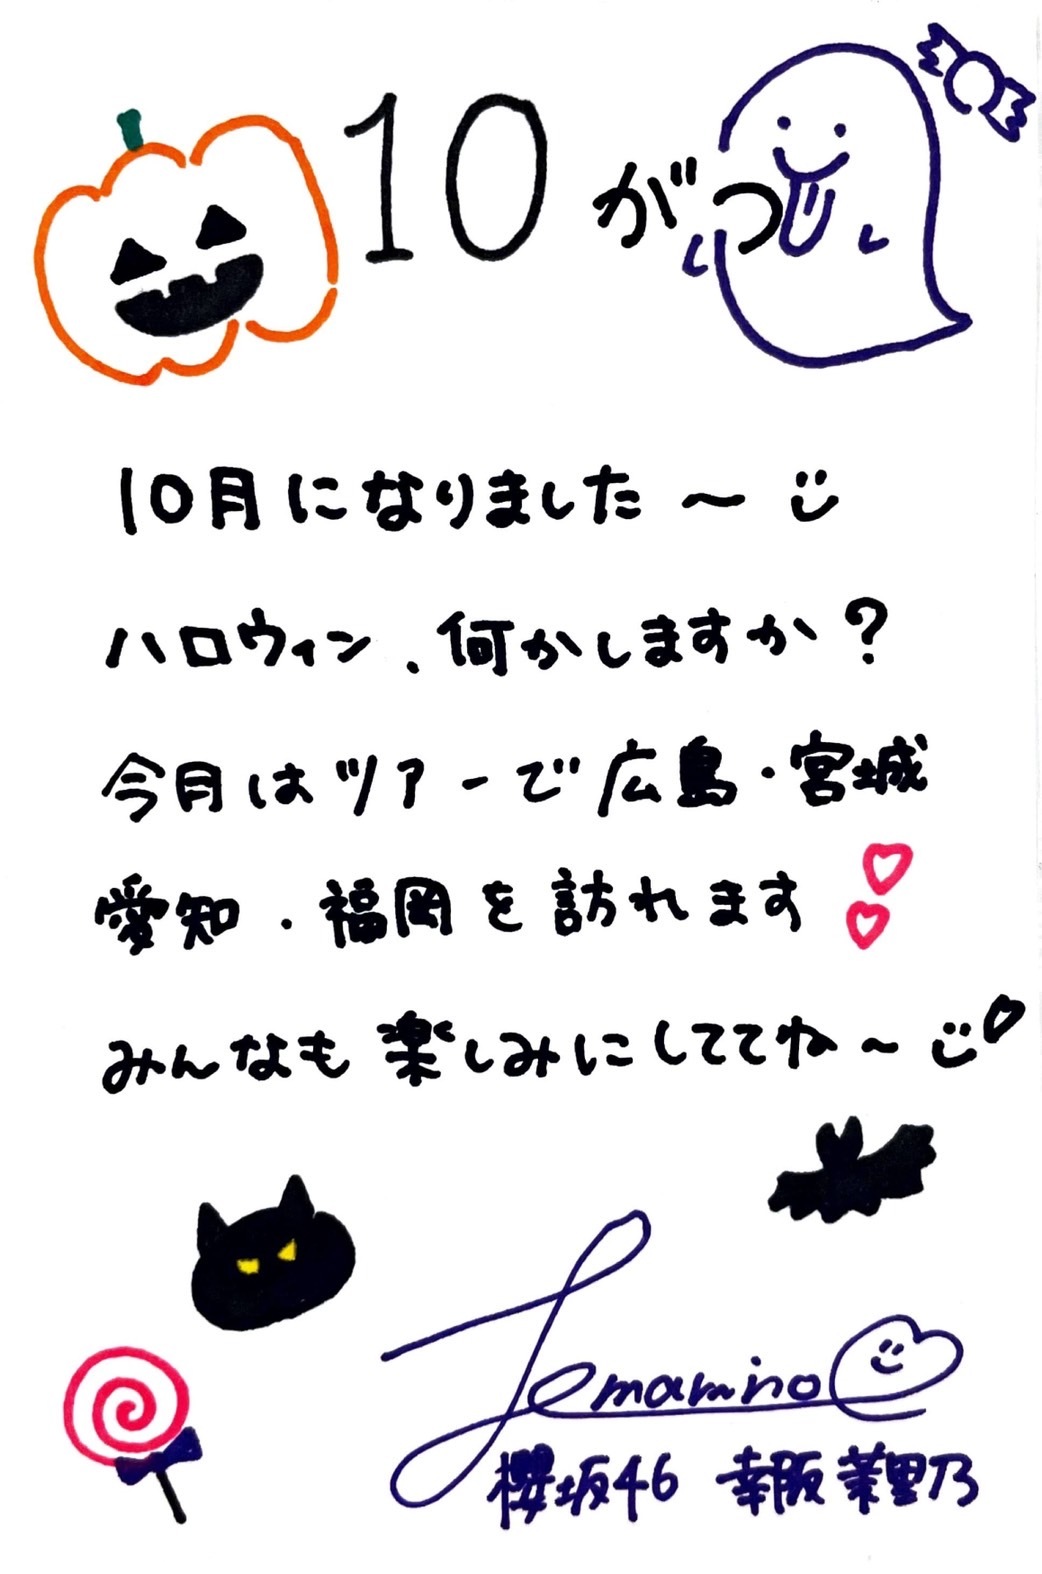 10がつ
10月になりました〜
ハロウィン、何かしますか?
今月はツアーで広島・宮城
愛知・福岡を訪れます
みんなも楽しみにしててね〜
櫻坂46 幸阪茉里乃